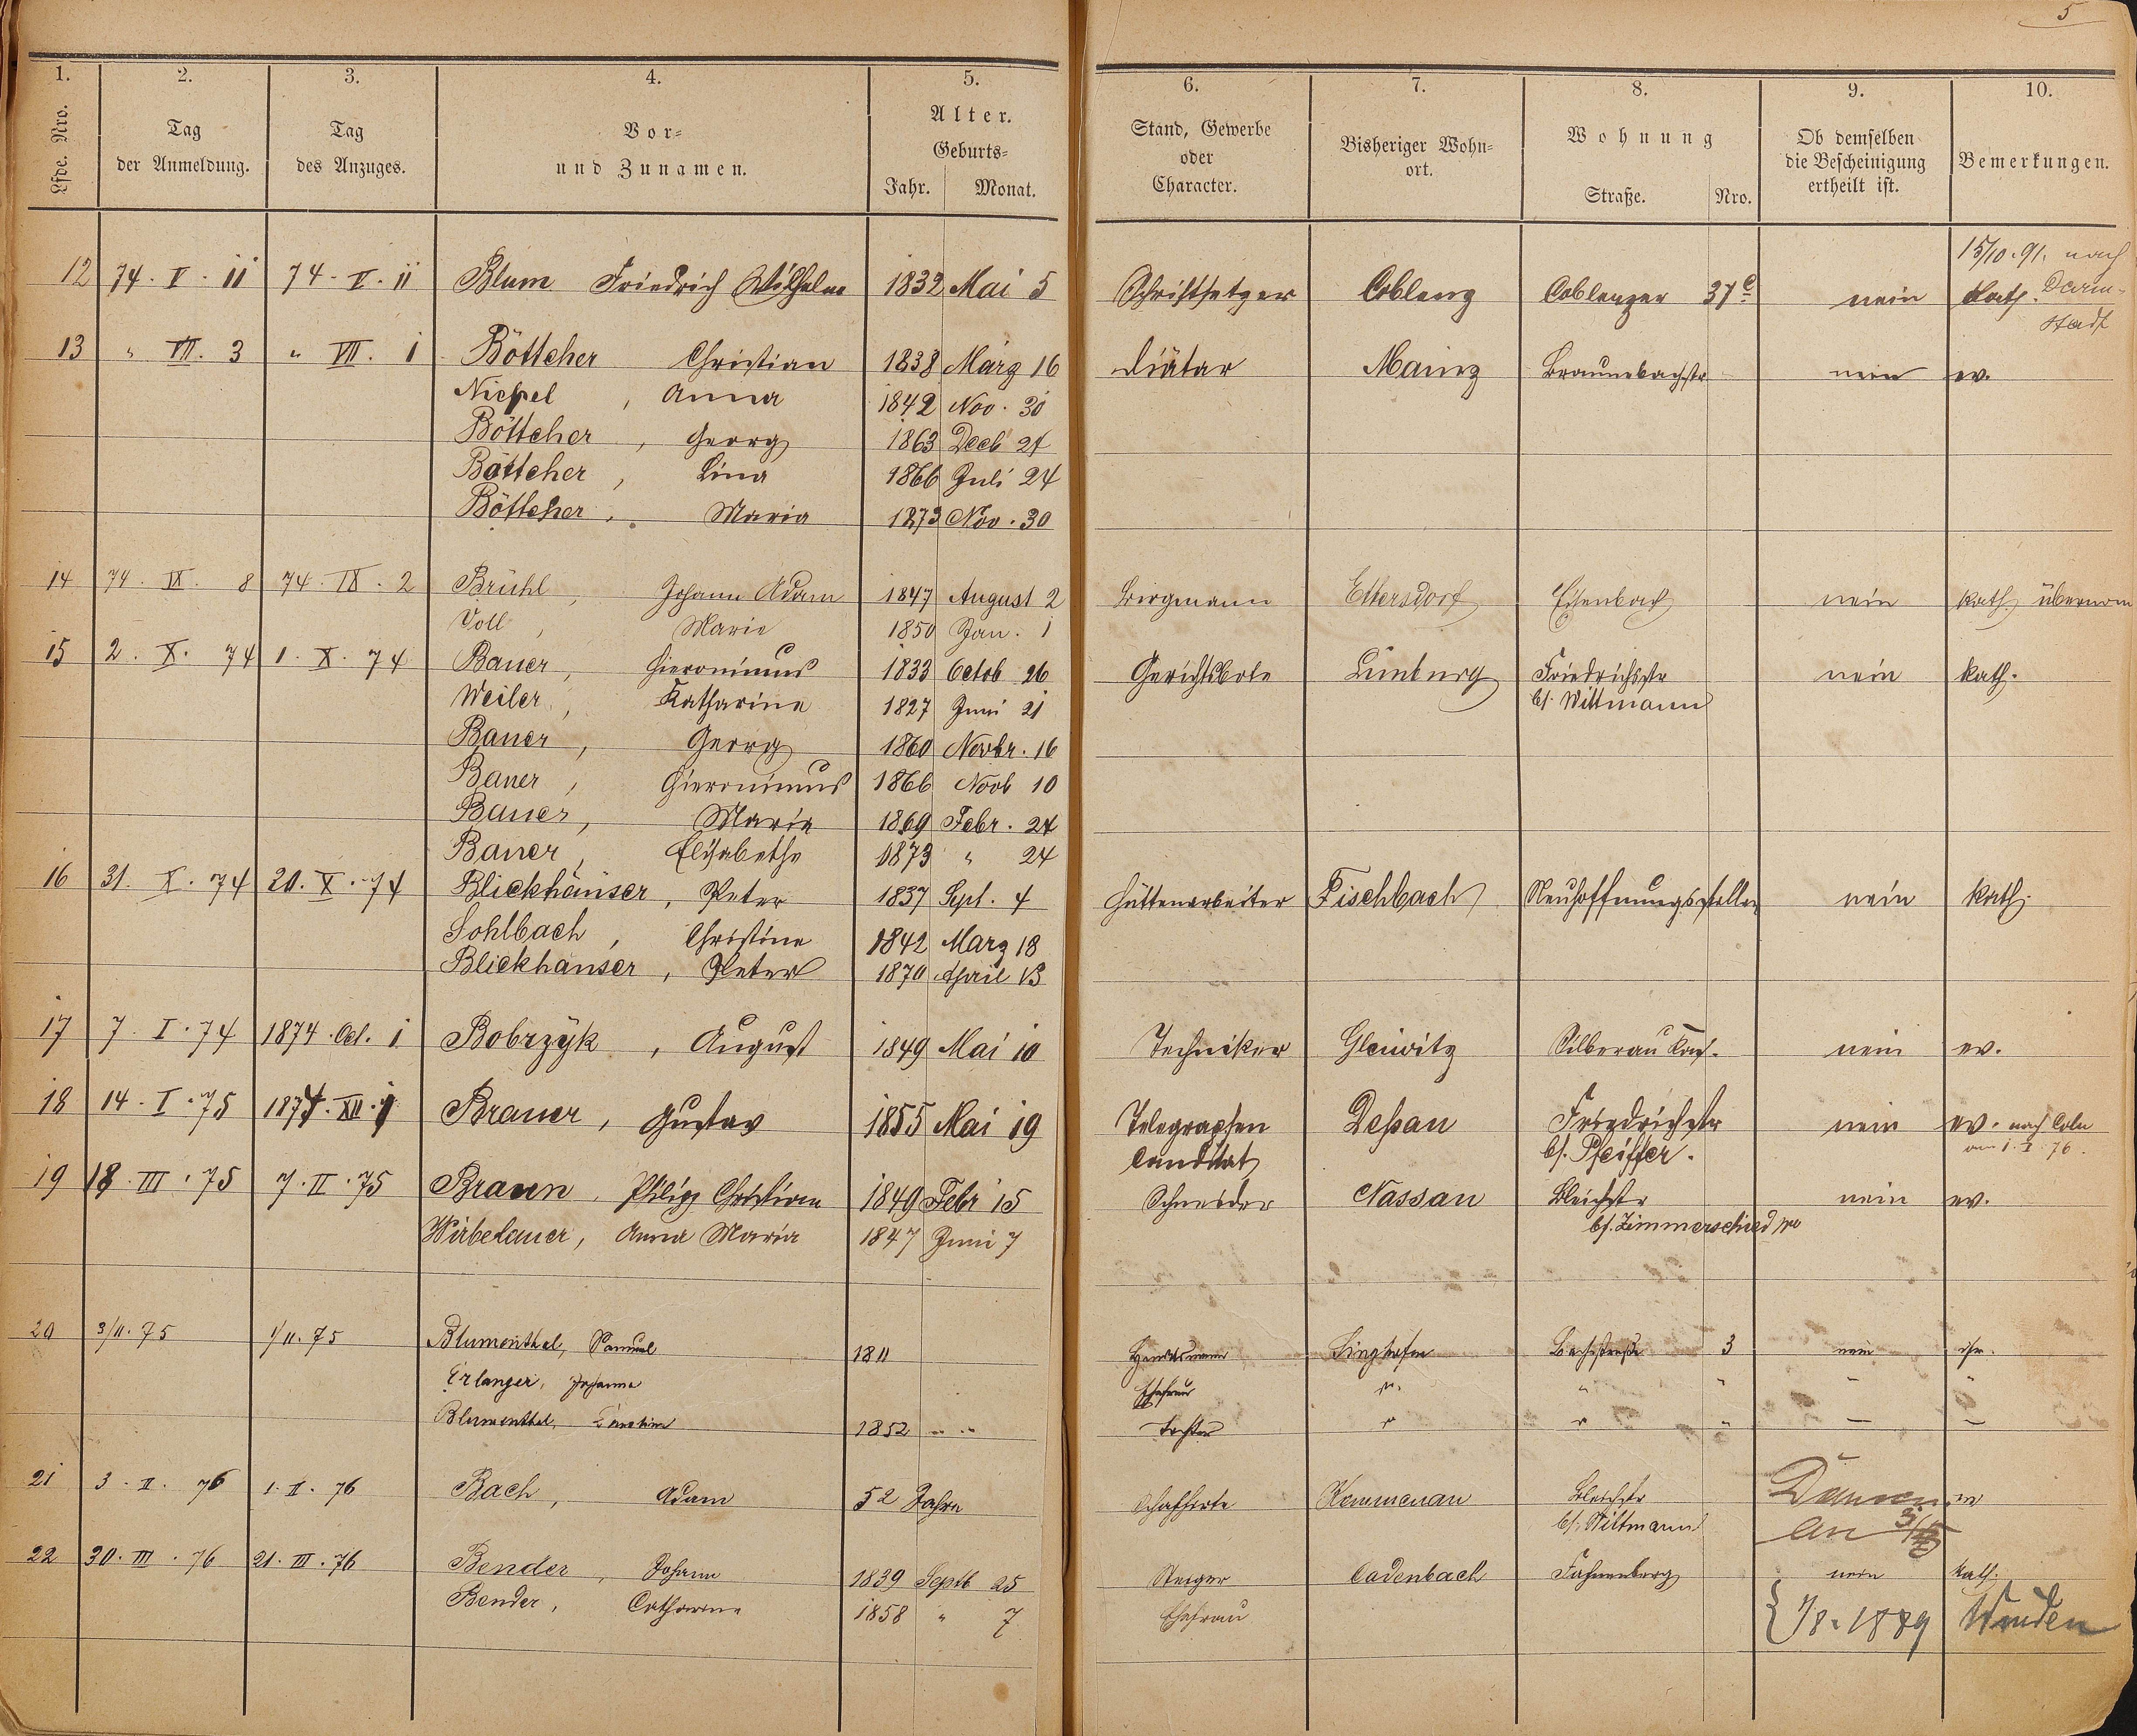 5
1. 2. 3. 4. 5. 6. 7. 8. 9. 10.
Lfde. Nro. Tag der Anmeldung. Tag des Anzuges. Vor- und Zunamen. Alter. Geburts- Jahr. Monat. Stand, Gewerbe oder Character. Bisheriger Wohn- ort. Wohnung Straße. Nro. Ob demselben die Bescheinigung ertheilt ist. Bemerkungen.
12 74. V. 11 74. V. 11 Blum Friedrich Wilhelm 1832 Mai 5 Schriftsetzer Coblenz Coblenzer 37c nein kath. 15/10.91. nach Darm- stadt
13 " VII. 3 " VII. 1 Böttcher Christian 1838 März 16 Diätar Mainz Braunebachstr nein ev.
Nickel, Anna 1842 Nov. 30
Böttcher, Georg 1863 Decb 27
Böttcher, Lina 1866 Juli 24
Böttcher, Maria 1873 Nov. 30
14 74. IX. 8 74. IX. 2 Brühl, Johann Adam 1847 August 2 Bergmann Ettersdorf Eisenbach nein kath
Voll, Marie 1850 Jan. 1
15 2. X. 74 1. X. 74 Bauer, Hieronimus 1833 Octob 26 Gerichtsbote Limburg Friedrichstr nein kath.
Weiler, Katharina 1827 Juni 21 bei Wittmann
Bauer, Georg 1860 Novbr. 16
Bauer, Hieronimus 1866 Novb 10
Bauer, Maria 1869 Febr. 24
Bauer, Elisabethe 1873 " 24
16 31. X. 74 20. X. 74 Blickhäuser, Peter 1837 Sept. 4 Hüttenarbeiter Fischbach Neuhoffnungsstollen nein kath.
Sohlbach, Christine 1842 Marz 18
Blickhäuser, Peter 1870 April 13
17 7. I. 74 1874. Oct. 1 Bobrzyk, August 1849 Mai 10 Techniker Gleiwitz Silberau nein ev.
18 14. I. 75 1874. XII. 1 Brauer, Gustav 1855 Mai 19 Telegraphen Candidat Deßau Friedrichstr bei Pfeiffer. nein ev. nach Coln am 1. I. 76.
19 18. III. 75 7. II. 75 Braun, Philipp Christian 1849 Febr 15 Schneider Nassau Bleichstr nein ev.
Wirbelauer, Anna Maria 1847 Juni 7 bei Zimmerschied
20 3/II. 75 1/II. 75 Blumenthal, Samuel 1811 Handelsmann Singhofen Bachstraße 3 nein isr.
Erlanger, Johanna Ehefrau " " " " "
Blumenthal, 1852 " " Tochter " " " — —
21 3. II. 76 1. II. 76 Bach, Adam 52 Jahre Schafhirte Kemmenau Bleichstr bei Wittmann Dausenau ev
22 30. III. 76 21. III. 76 Bender, Johann 1839 Septb 25 Steiger Cadenbach Fahnenberg nein kath.
Bender, Catharina 1858 " 7 Ehefrau 1/8. 1889 Winden